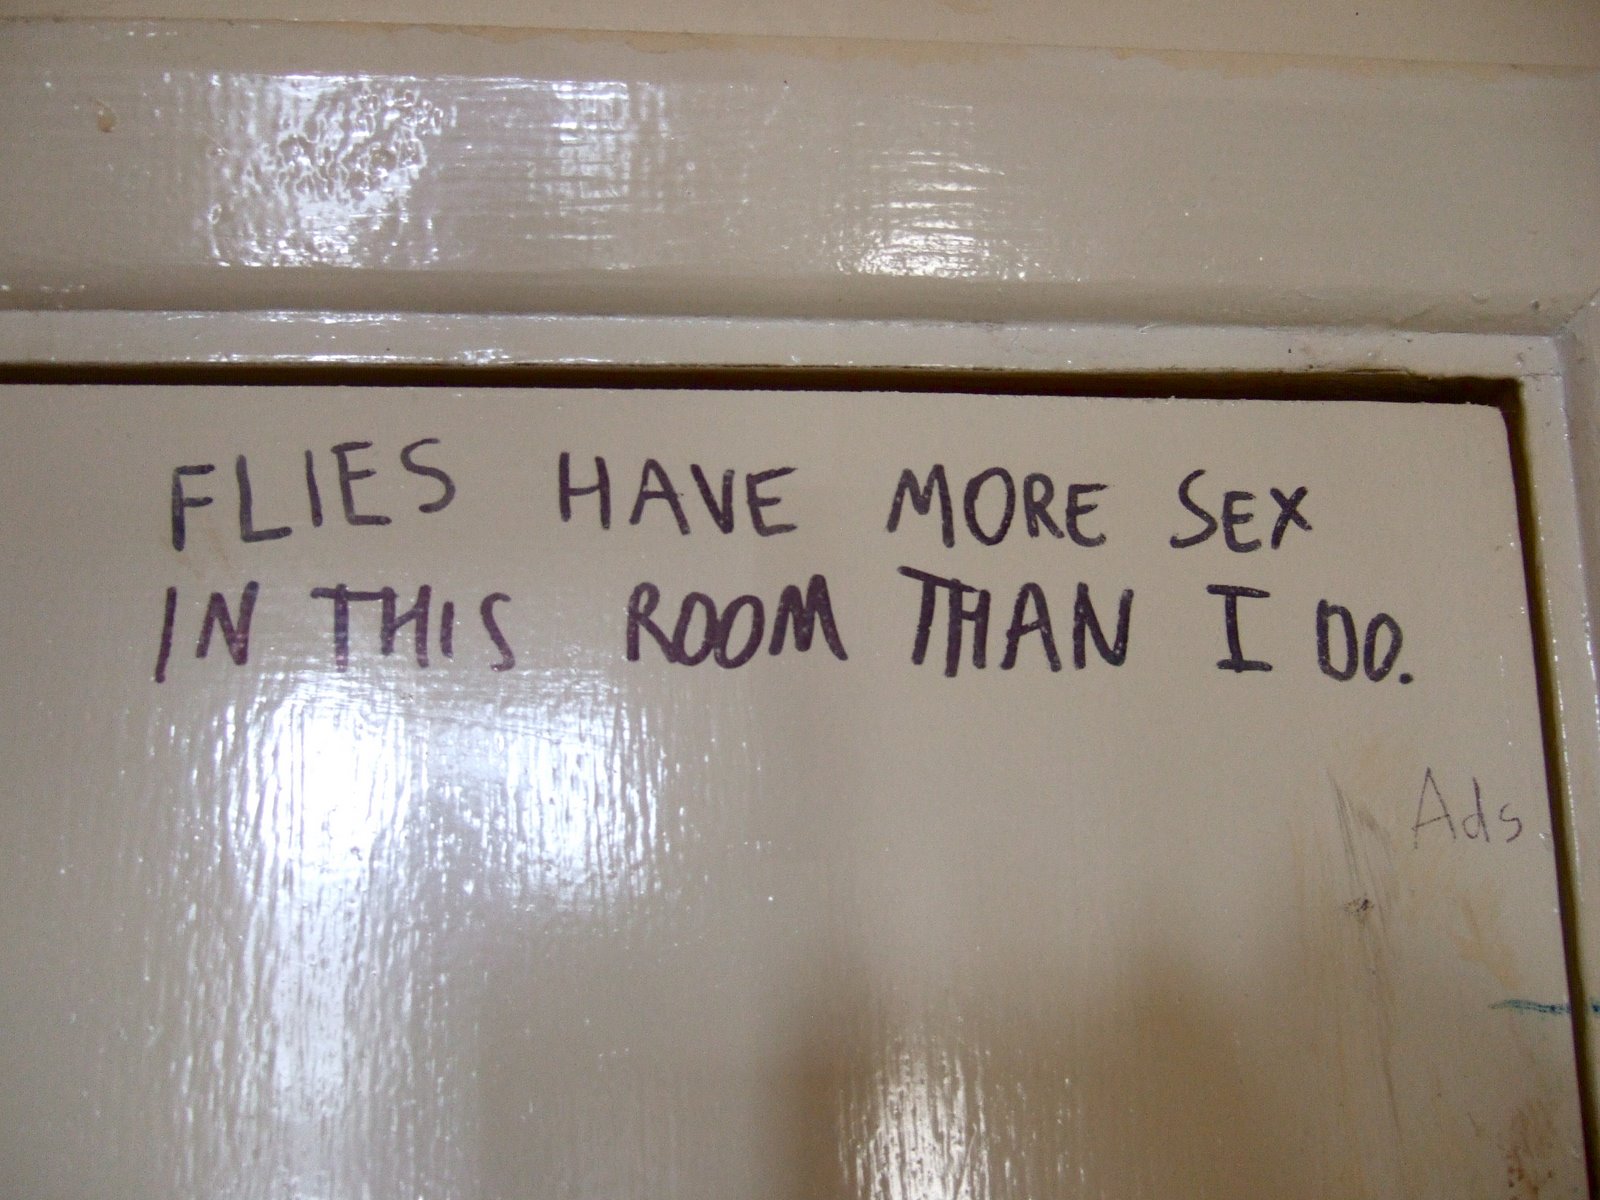 FLIES HAVE MORE SEX
IN THIS ROOM THAN I DO.
Ads